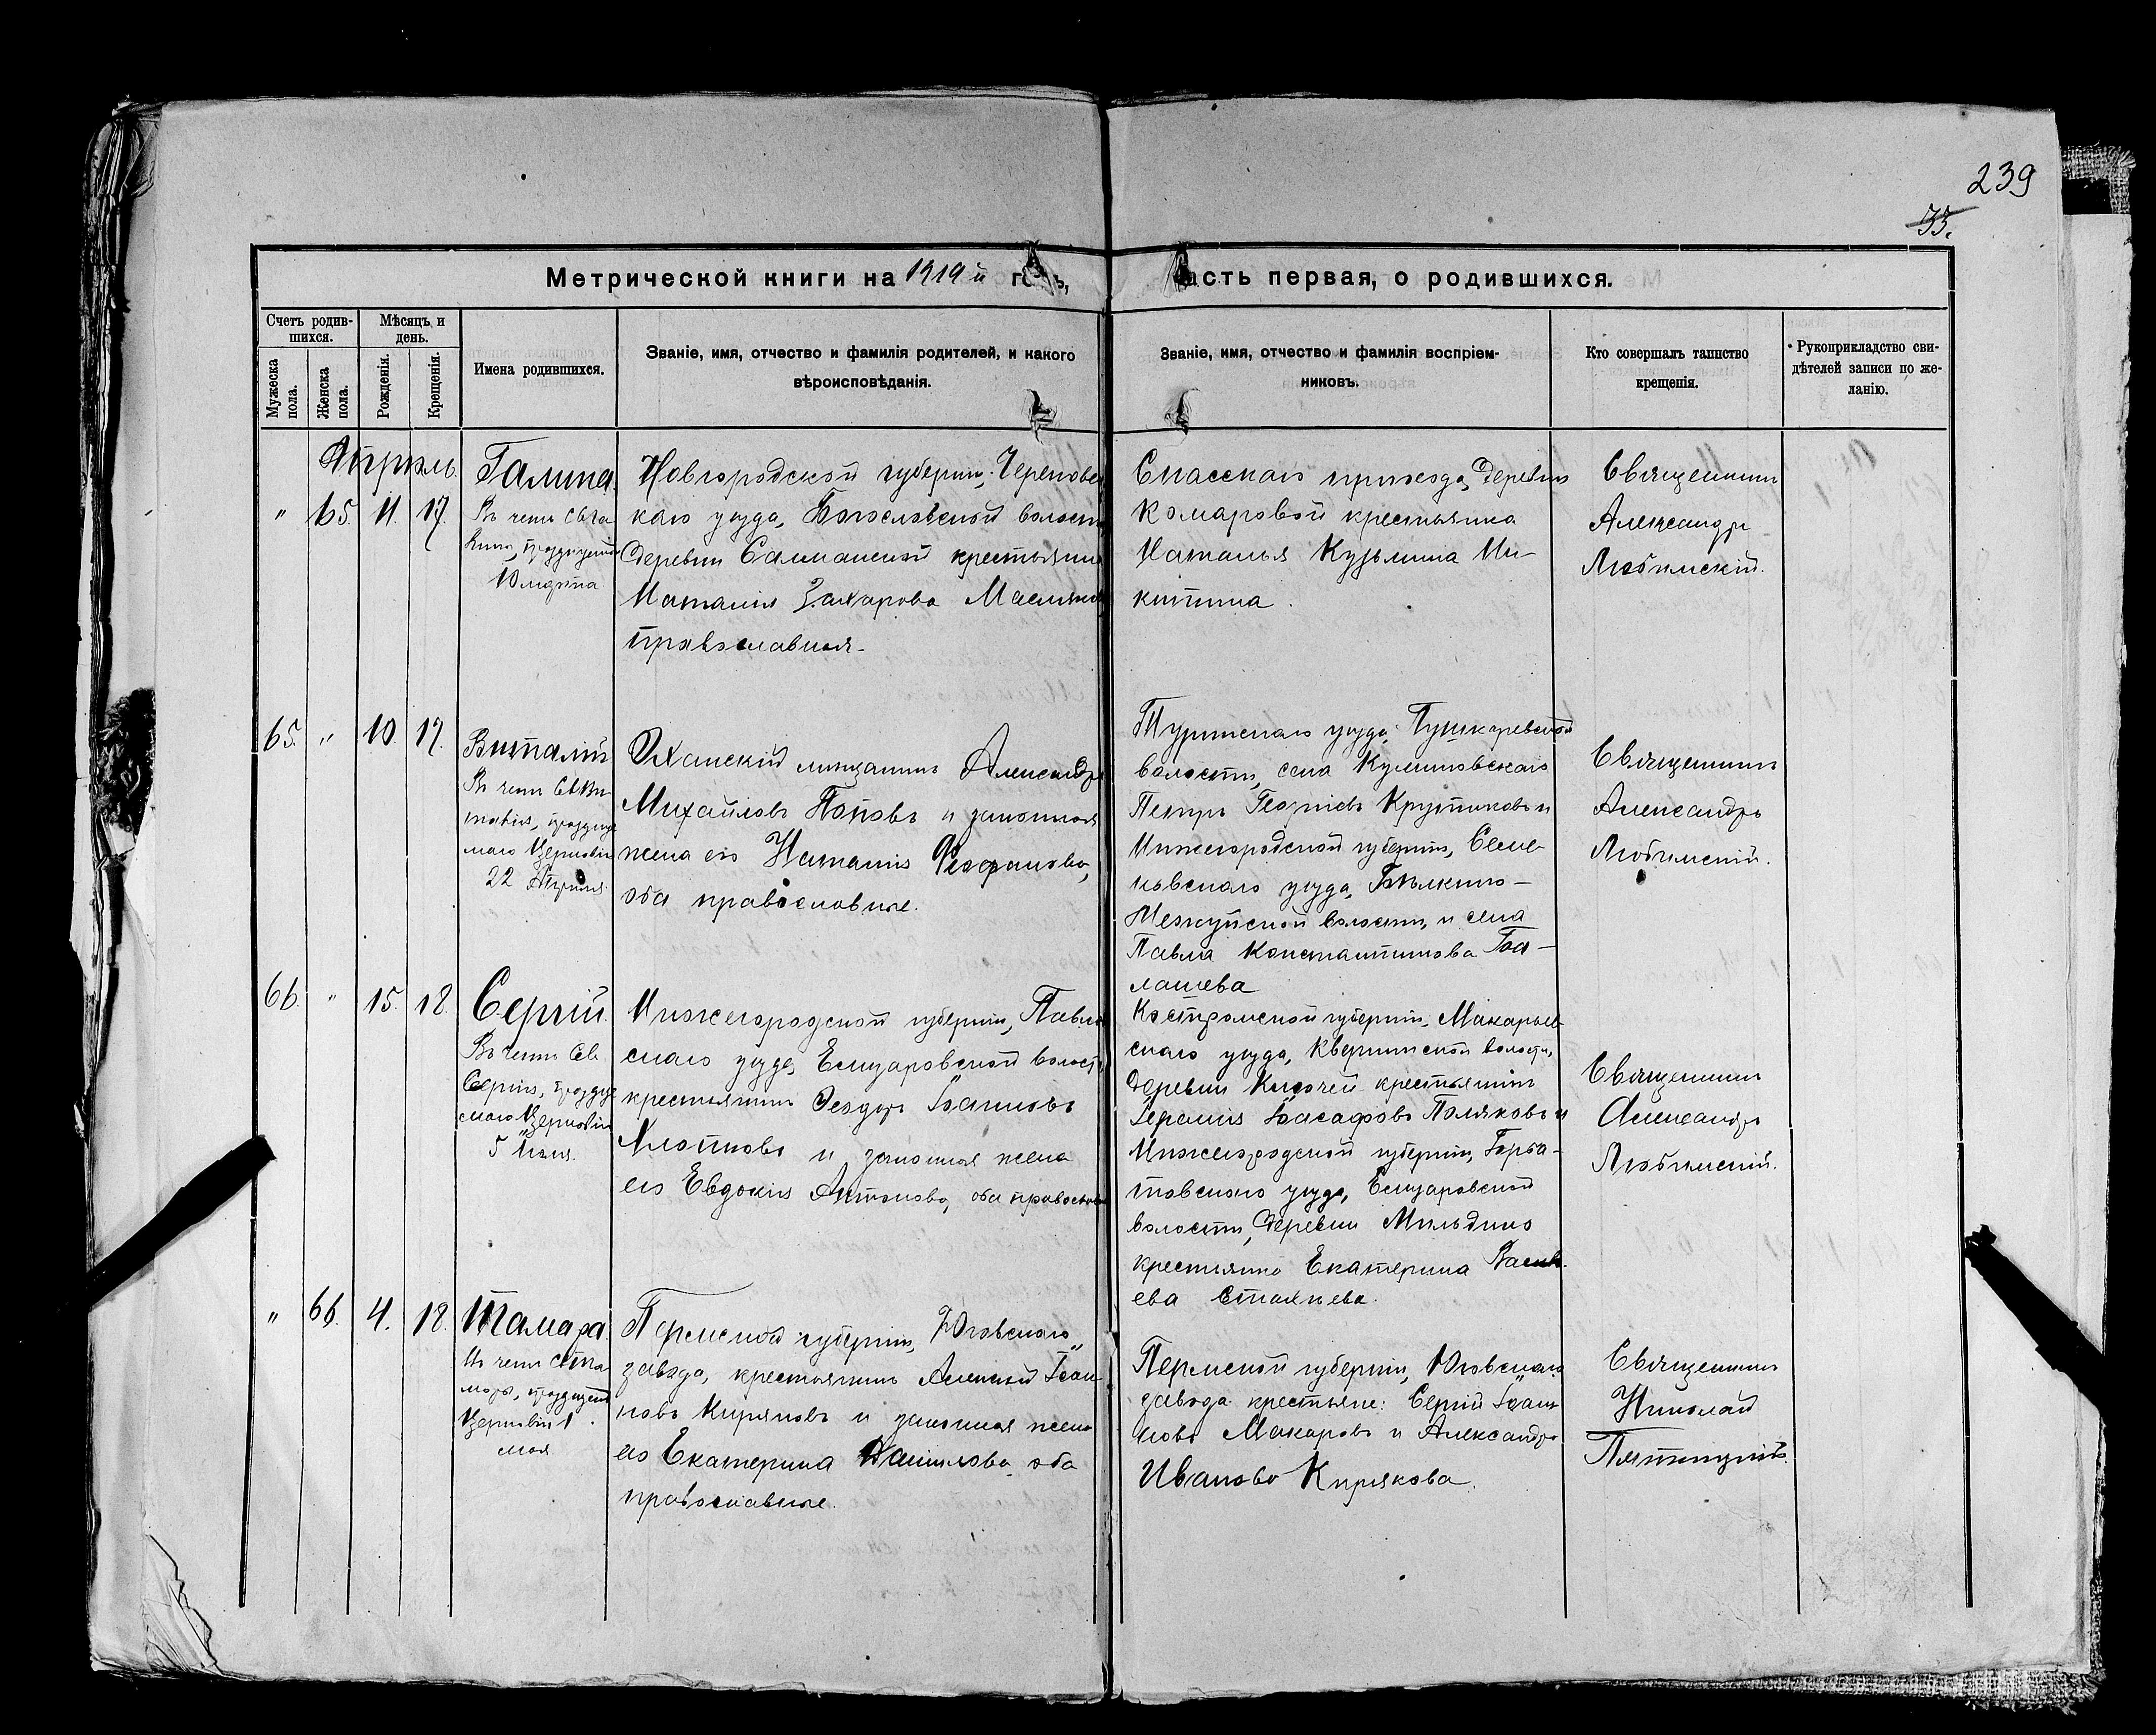 239
33.
Метрической книги на 1919 й годъ,
часть первая, о родившихся.
Счетъ родив-
шихся.
Мѣсяцъ и
день.
Мужеска
пола.
Женска
пола.
Рожденія.
Крещенія.
Имена родившихся.
Званіе, имя, отчество и фамилія родителей, и какого
вѣроисповѣданія.
Званіе, имя, отчество и фамилія воспріем-
никовъ.
Кто совершалъ таинство
крещенія.
Рукоприкладство сви-
дѣтелей записи по же-
ланію.
Апрѣль.
" 65. 11. 17.
Галина.
Въ честь
Новгородской губерніи, Черепове
каго уѣзда, Богословской волости
деревни крестьянка
Наталія Захарова
православная.
Спасскаго прихода, деревни
Комаровой крестьянка
Наталья Кузьмина Ни-
китина.
Священникъ
Александръ
Любимскій.
65. " 10. 17.
Виталій
Въ честь Св. Ви-
талія, праздную
маго Церковію
22 Апрѣля.
Оханскій мѣщанинъ Александръ
Михайловъ Поповъ и законная
жена его Наталія Феофанова,
оба православные.
Туринскаго уѣзда, Пушкаревской
волости, села Куминовскаго
Петръ Георгіевъ Крутиковъ и
Нижегородской губерніи, Семе-
новскаго уѣзда,
волости, и села
Павла Константинова
лашева
Священникъ
Александръ
Любимскій.
66. " 15. 18.
Сергій.
Въ честь Св.
Сергія, праздну
маго Церковію
5 Іюля.
Нижегородской губерніи, Павлов
скаго уѣзда, Есипаровской волости,
крестьянинъ Ѳеодоръ Іоанновъ
и законная жена
его Евдокія Антонова, оба православн
Костромской губерніи, Макарьев
скаго уѣзда, волости,
деревни крестьянинъ
Іоасафовъ Поляковъ и
Нижегородской губерніи, Горба-
товскаго уѣзда, Есипаровской
волости, деревни
крестьянка Екатерина Василь-
ева
Священникъ
Александръ
Любимскій.
" 66. 4. 18.
Тамара.
Въ честь Св. Та-
мары, празднуемой
Церковію 1
мая
Пермской губерніи, Юговскаго
завода, крестьянинъ Алексій Іоан-
новъ Киряковъ и законная жена
его Екатерина Данилова, оба
православные.
Пермской губерніи, Юговскаго
завода крестьяне: Сергій Іоан-
новъ Макаровъ и Александра
Иванова Кирякова.
Священникъ
Николай
Пятницкій.